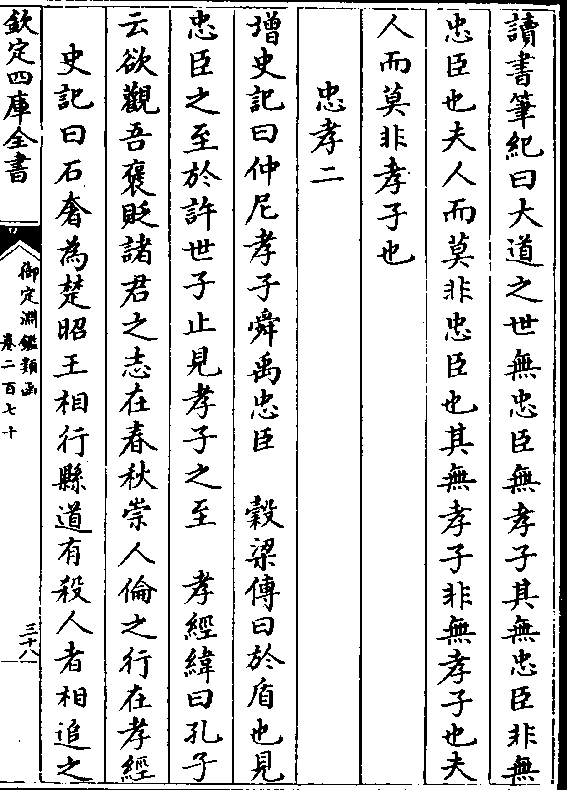 讀書筆紀曰大道之世無忠臣無孝子其無忠臣非無
忠臣也夫人而莫非忠臣也其無孝子非無孝子也夫
人而莫非孝子也
忠孝二
增史記曰仲尼孝子舜禹忠臣　穀梁傳曰於盾也見
忠臣之至於許世子止見孝子之至　孝經緯曰孔子
云欲觀吾褒貶諸君之志在春秋崇人倫之行在孝經
史記曰石奢為楚昭王相行縣道有殺人者相追之
欽定四庫全書
御定淵鑑類函
卷二百七十
三十八